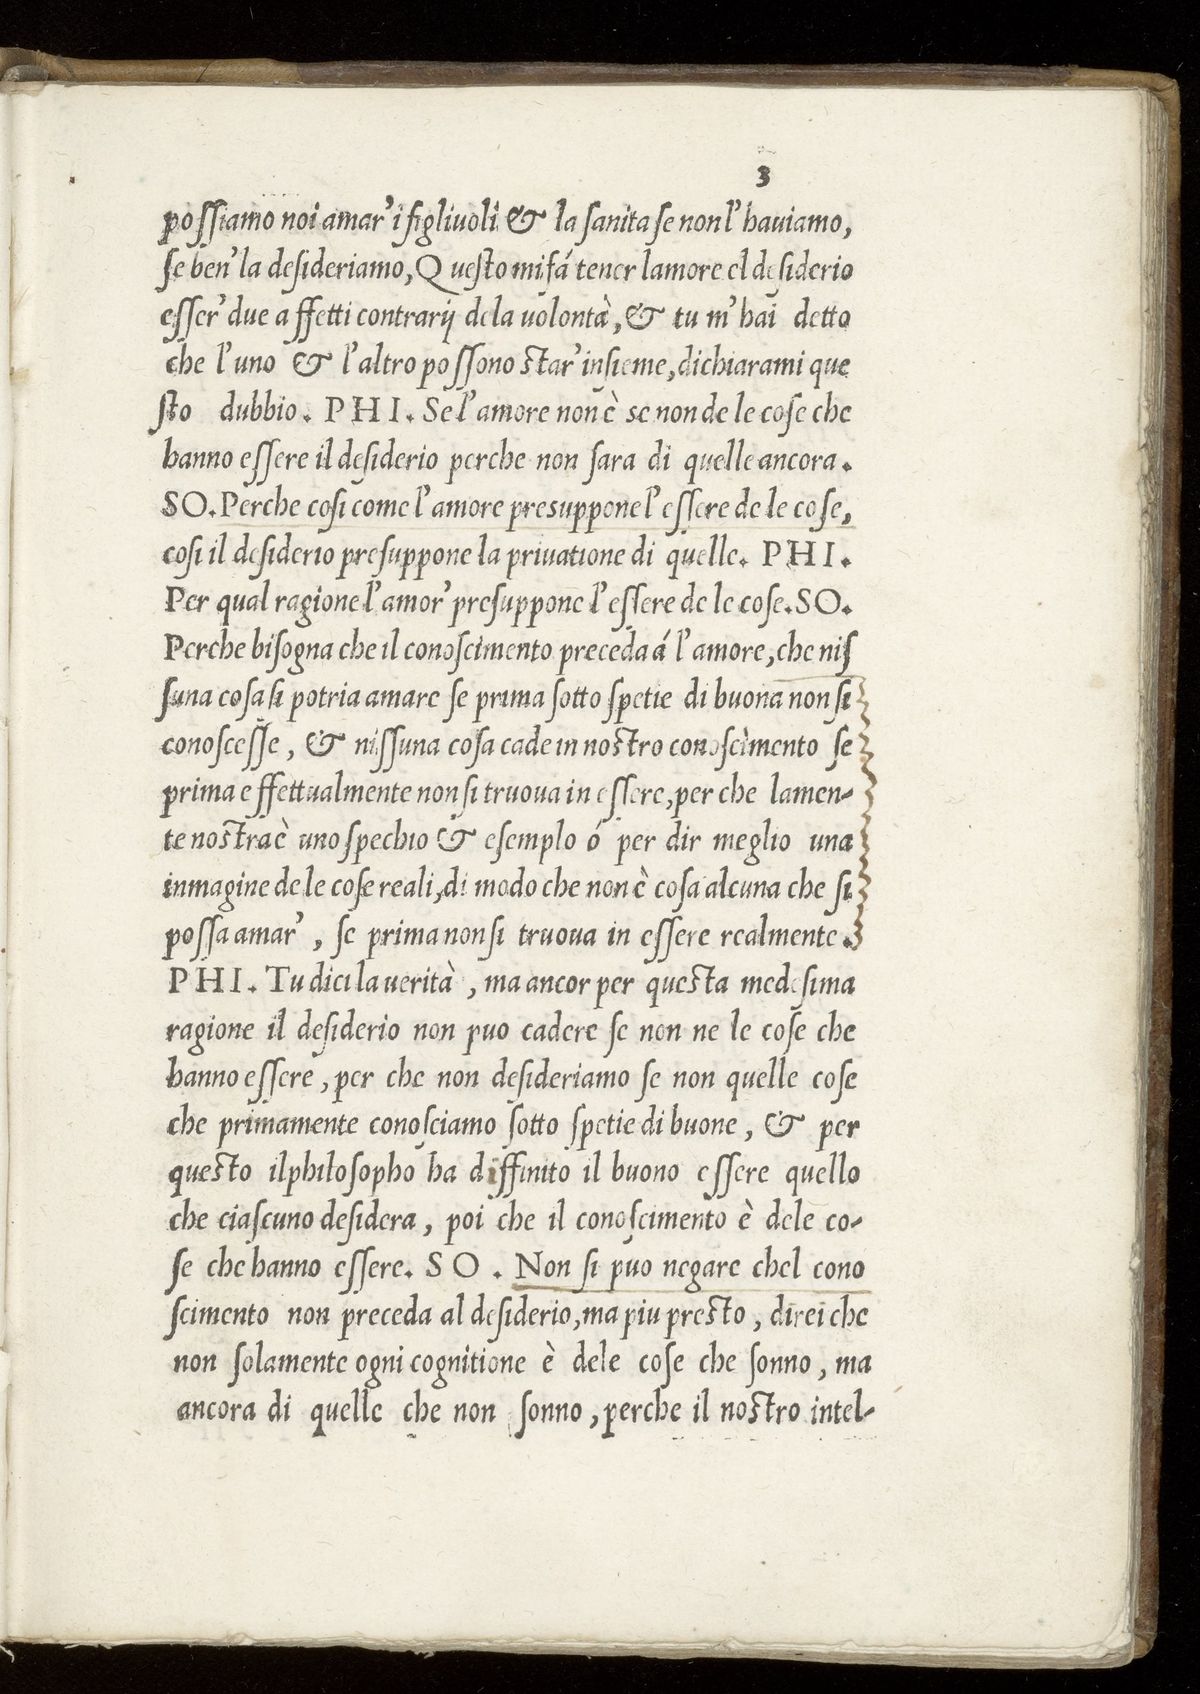 3
poſſiamo noi amar' i figliuoli & la ſanita ſe non l' haviamo,
ſe ben' la deſideriamo, Queſto mi fá tener lamore el deſiderio
eſſer' due affetti contrarij dela uolontà, & tu m' hai detto
che l' uno & l' altro poſſono ſtar' inſieme, dichiarami que
ſto dubbio. PHI. Se l' amore non è se non de le coſe che
hanno eſſere il deſiderio perche non ſara di quelle ancora.
SO. Perche coſi come l' amore presuppone l' eſſere de le coſe,
coſi il deſiderio preſuppone la priuatione di quelle. PHI.
Per qual ragione l' amor' preſuppone l' eſſere de le coſe. SO.
Perche biſogna che il conoſcimento preceda á l' amore, che niſ
ſuna coſa ſi potria amare ſe prima ſotto ſpetie di buona non ſi
conoſceſſe, & niſſuna coſa cade in noſtro conoſcimento ſe
prima effettualmente non ſi truoua in eſſere, per che lamen-
te noſtra è uno ſpechio & eſemplo ó per dir meglio una
inmagine de le coſe reali, di modo che non è coſa alcuna che ſi
poſſa amar', ſe prima non ſi truoua in eſſere realmente.
PHI. Tu dici la uerità, ma ancor per queſta medeſima
ragione il deſiderio non puo cadere ſe non ne le coſe che
hanno eſſere, per che non deſideriamo ſe non quelle coſe
che primamente conoſciamo ſotto ſpetie di buone, & per
queſto ilphiloſopho ha diffinito il buono eſſere quello
che ciaſcuno deſidera, poi che il conoſcimento è dele co-
ſe che hanno eſſere. SO. Non ſi puo negare chel cono
ſcimento non preceda al deſiderio, ma piu preſto, direi che
non ſolamente ogni cognitione è dele coſe che ſonno, ma
ancora di quelle che non ſonno, perche il noſtro intel-